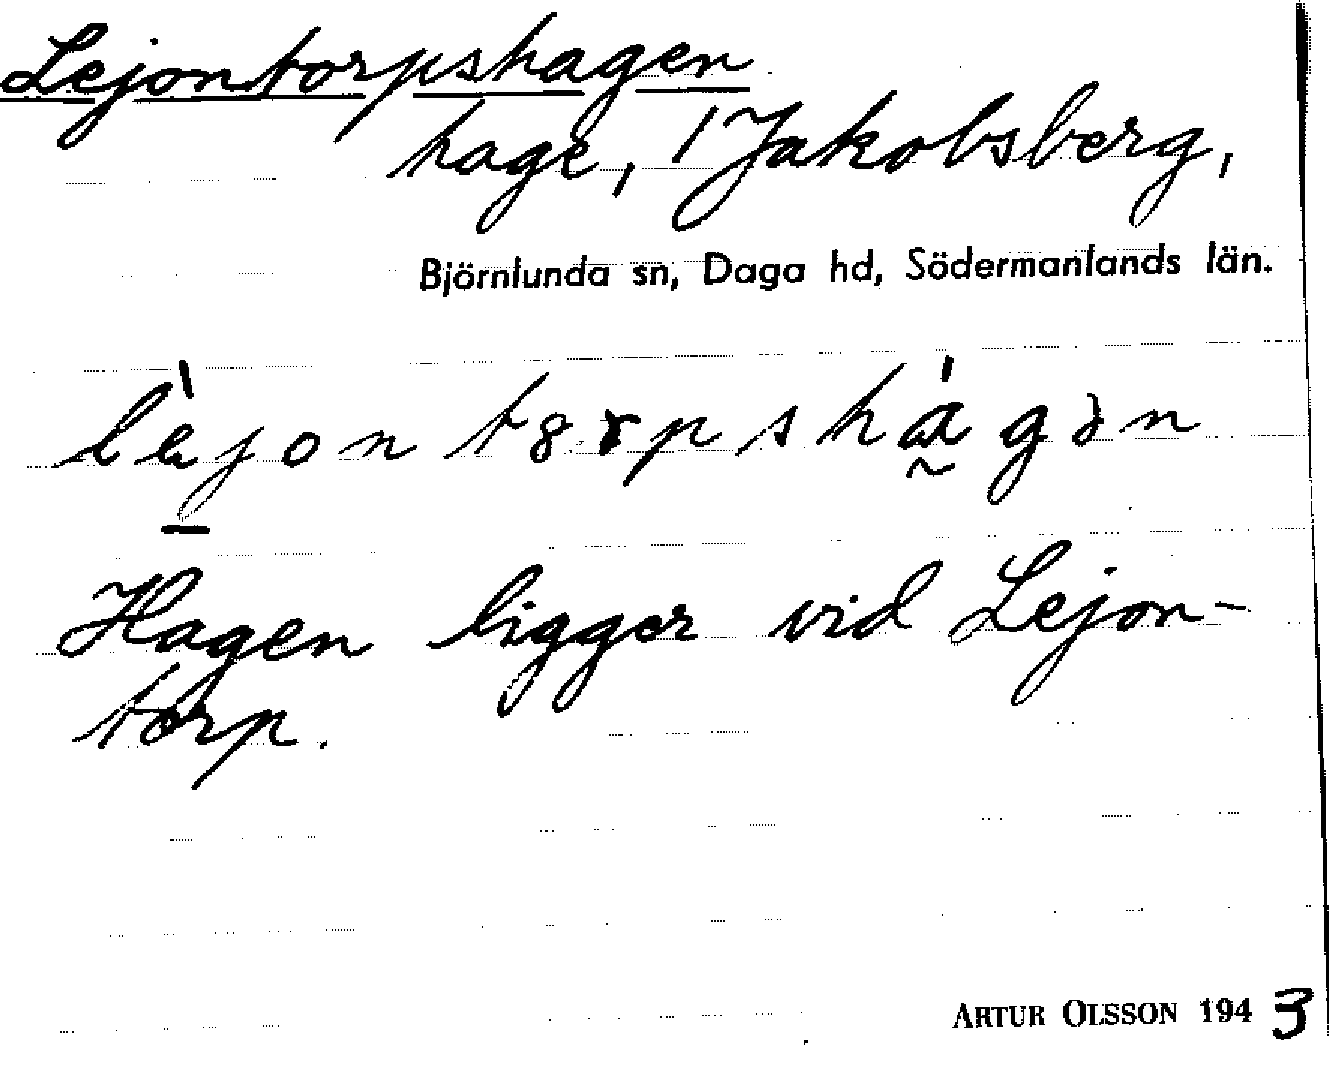 Lejontorpshagen
hage, / Jakobsberg,
Björnlunda sn, Daga hd, Södermanlands län.
Hagen ligger vid Lejon-
torp.
ARTUR OLSSON 1943